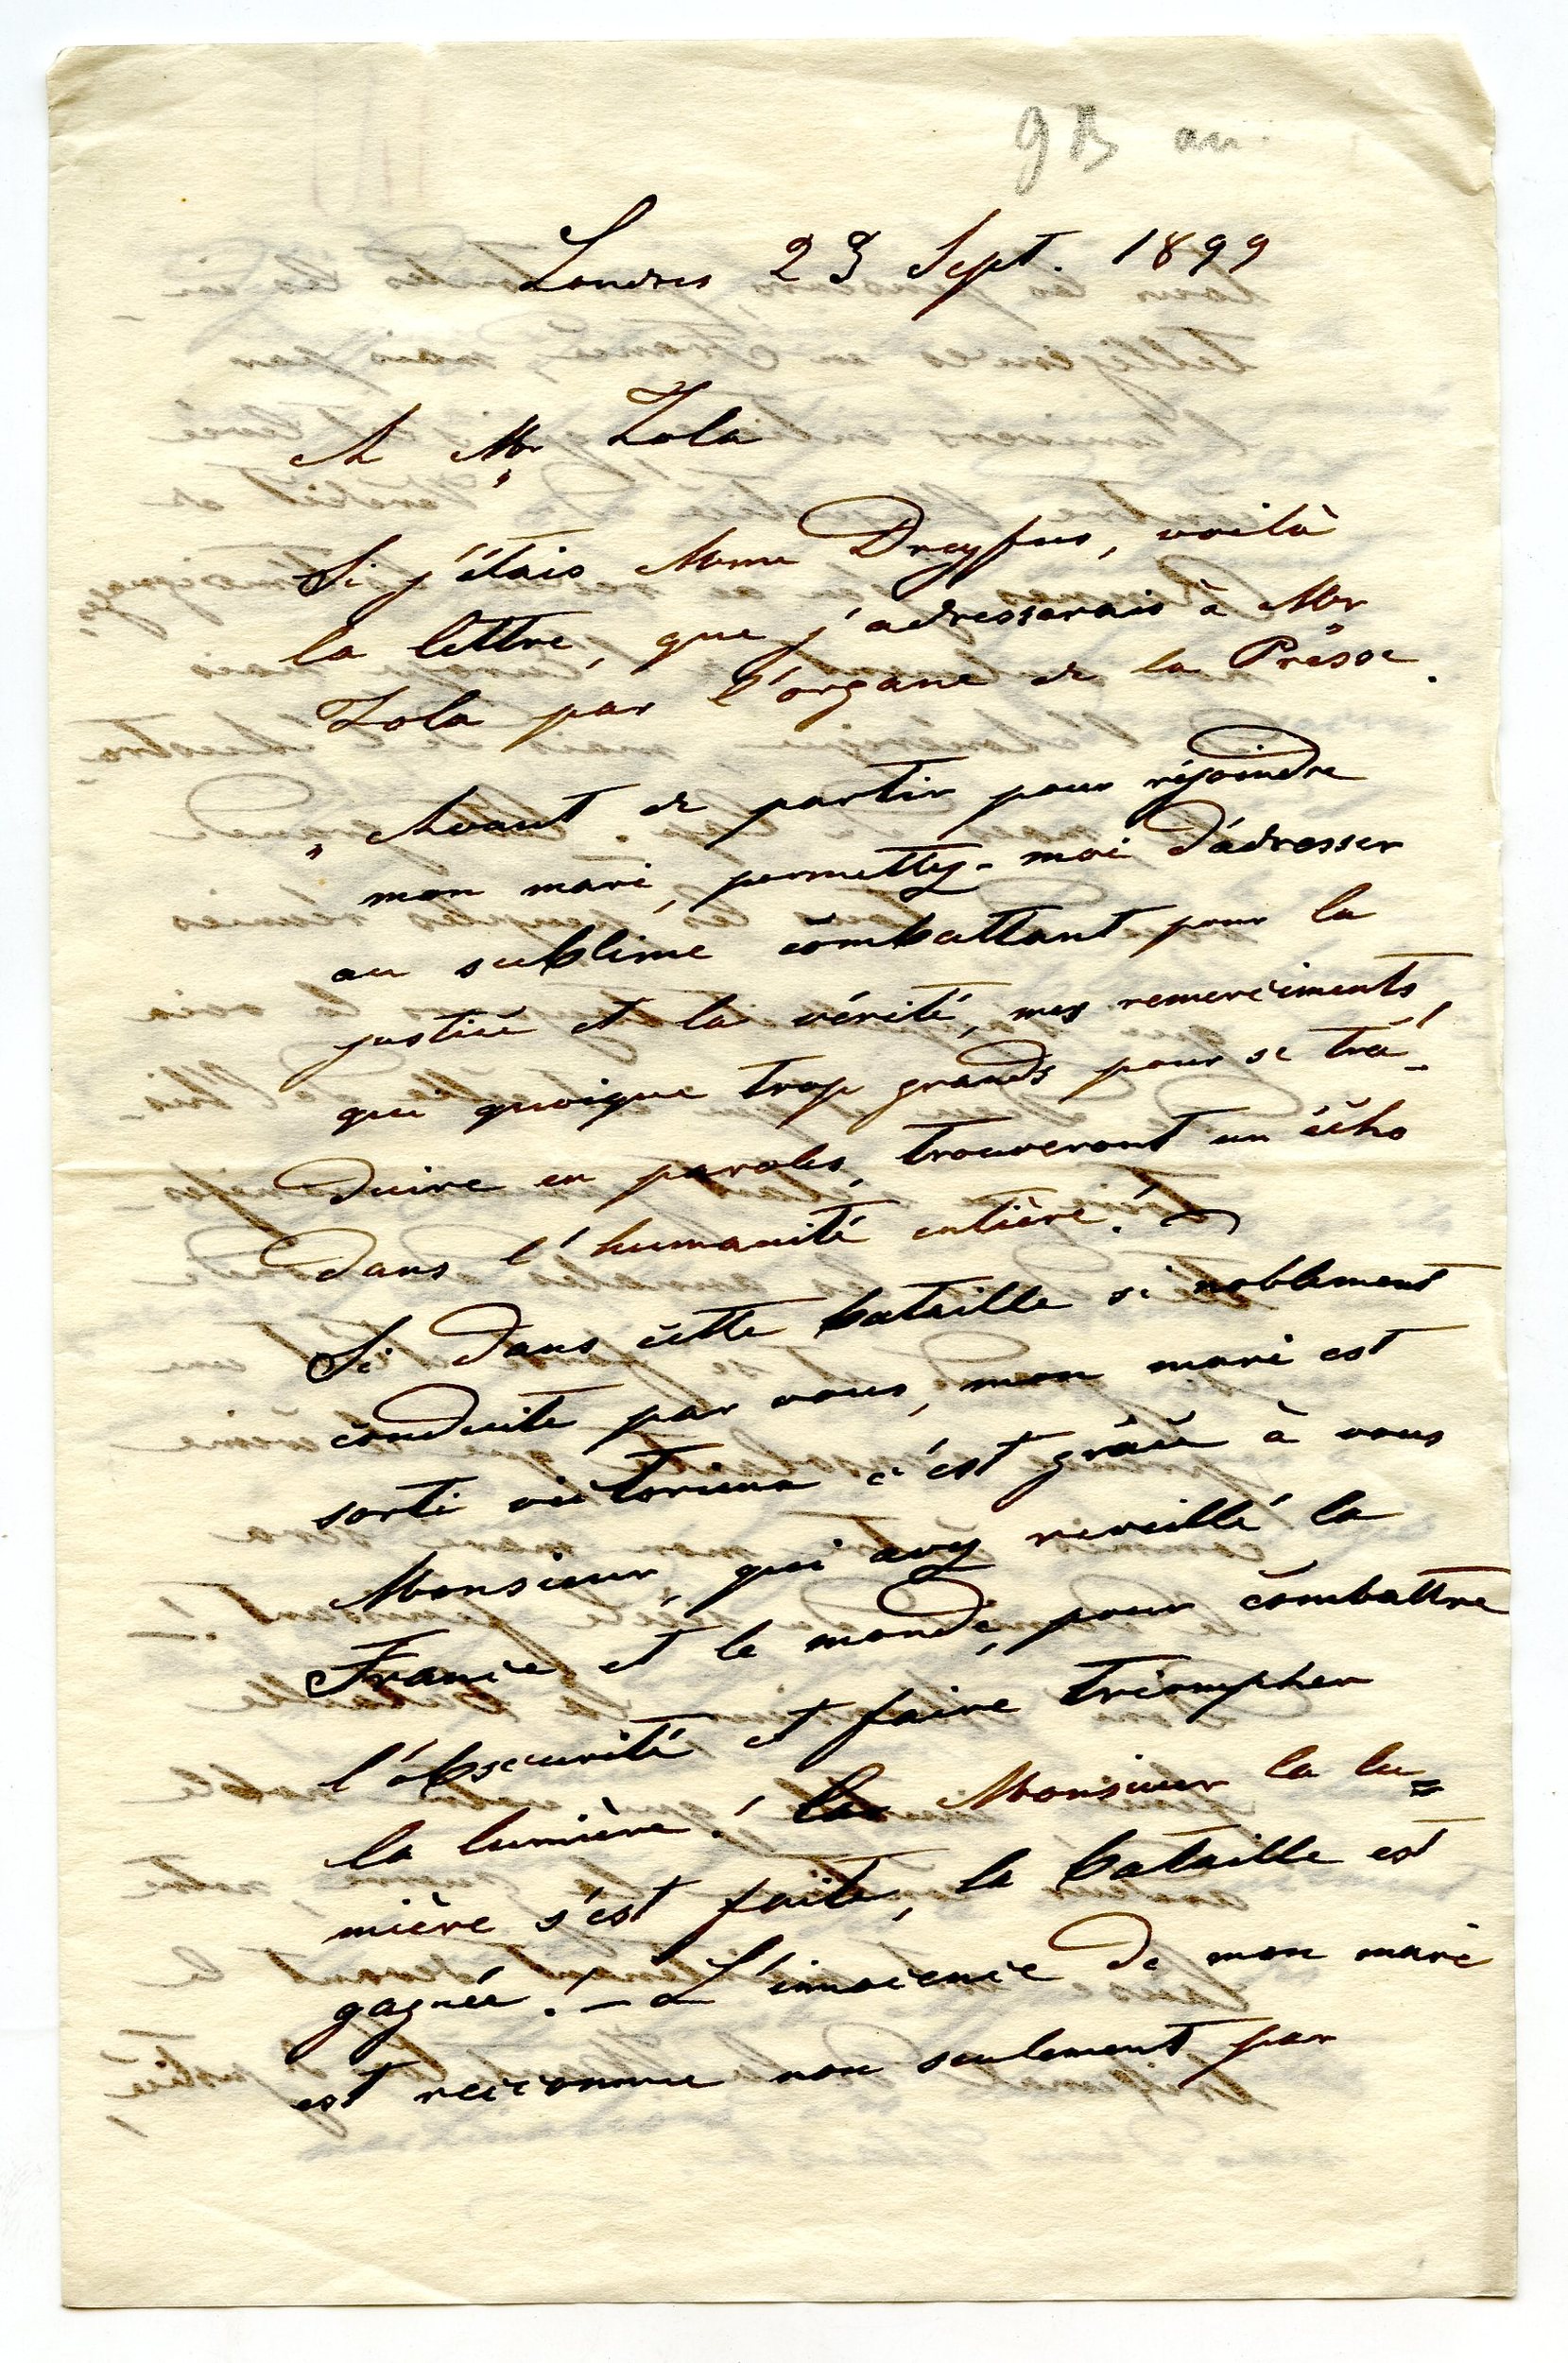 GB an.
Londres 23 Sept. 1899
A Mr Zola
Si j'étais Mme Dreyfus, voilà
la lettre, que j'adresserais à Mr
Zola par l'organe de la Presse.
„ Avant de partir pour réjoindre
mon mari, permettez-moi d'adresser
au sublime combattant pour la
justice et la vérité, mes remerciments,
qui quoique trop grands pour se tra-
duire en paroles, trouveront un écho
dans l'humanité entière! —
Si dans cette bataille si noblement
conduite par vous, mon mari est
sorti victorieux c'est grâce à vous
Monsieur, qui avez reveillé la
France et le monde, pour combattre
l'obscurité et faire triompher
la lumière! Monsieur la lu=
mière s'est faite, la bataille est
gagnée! — L'innocence de mon mari
est reconnue non seulement par